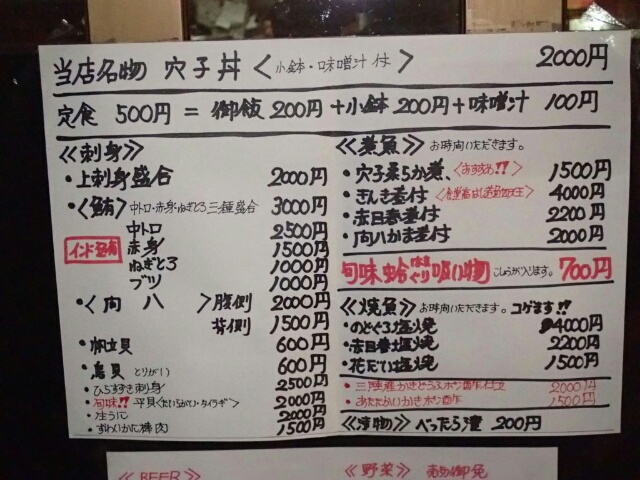 当店名物 穴子丼 <小鉢・味噌汁付> 2000円
定食 500円 = 御飯 200円 +小鉢 200円+味噌汁 100円
≪刺身≫
・上刺身盛合 2000円
・<鮪> 中トロ・赤身・ねぎとろ三種盛合 3000円
インド鮪
中トロ 2500円
赤身 1500円
ねぎとろ 1000円
ブツ 1000円
・<向 八 >腹側 2000円
背側 1500円
・帆立貝 600円
・鳥貝 とりがい 600円
・ひらすずき刺身 2500円
・旬味!! 平貝<たいらがい・タイラギ> 2000円
・生うに 2000円
・ずわいかに棒肉 1500円
≪煮魚≫ お時間いただきます。
・穴子柔らか煮、<おすすめ!!> 1500円
・きんき煮付 4000円
・赤目春煮付 2200円
・向八かま煮付 2000円
旬味 蛤 はまぐり 吸い物 こしょうが入ります。 700円
≪焼魚≫ お時間いただきます。コゲます!!
・のどぐろ塩焼 4000円
・赤目春塩焼 2200円
・花だい塩焼 1500円
・三陸産かきどうふポン酢仕立 2000円
・あたたかいかきポン酢 1500円
≪漬物≫ べったら漬 200円
≪BEER≫
≪野菜≫ 売切御免